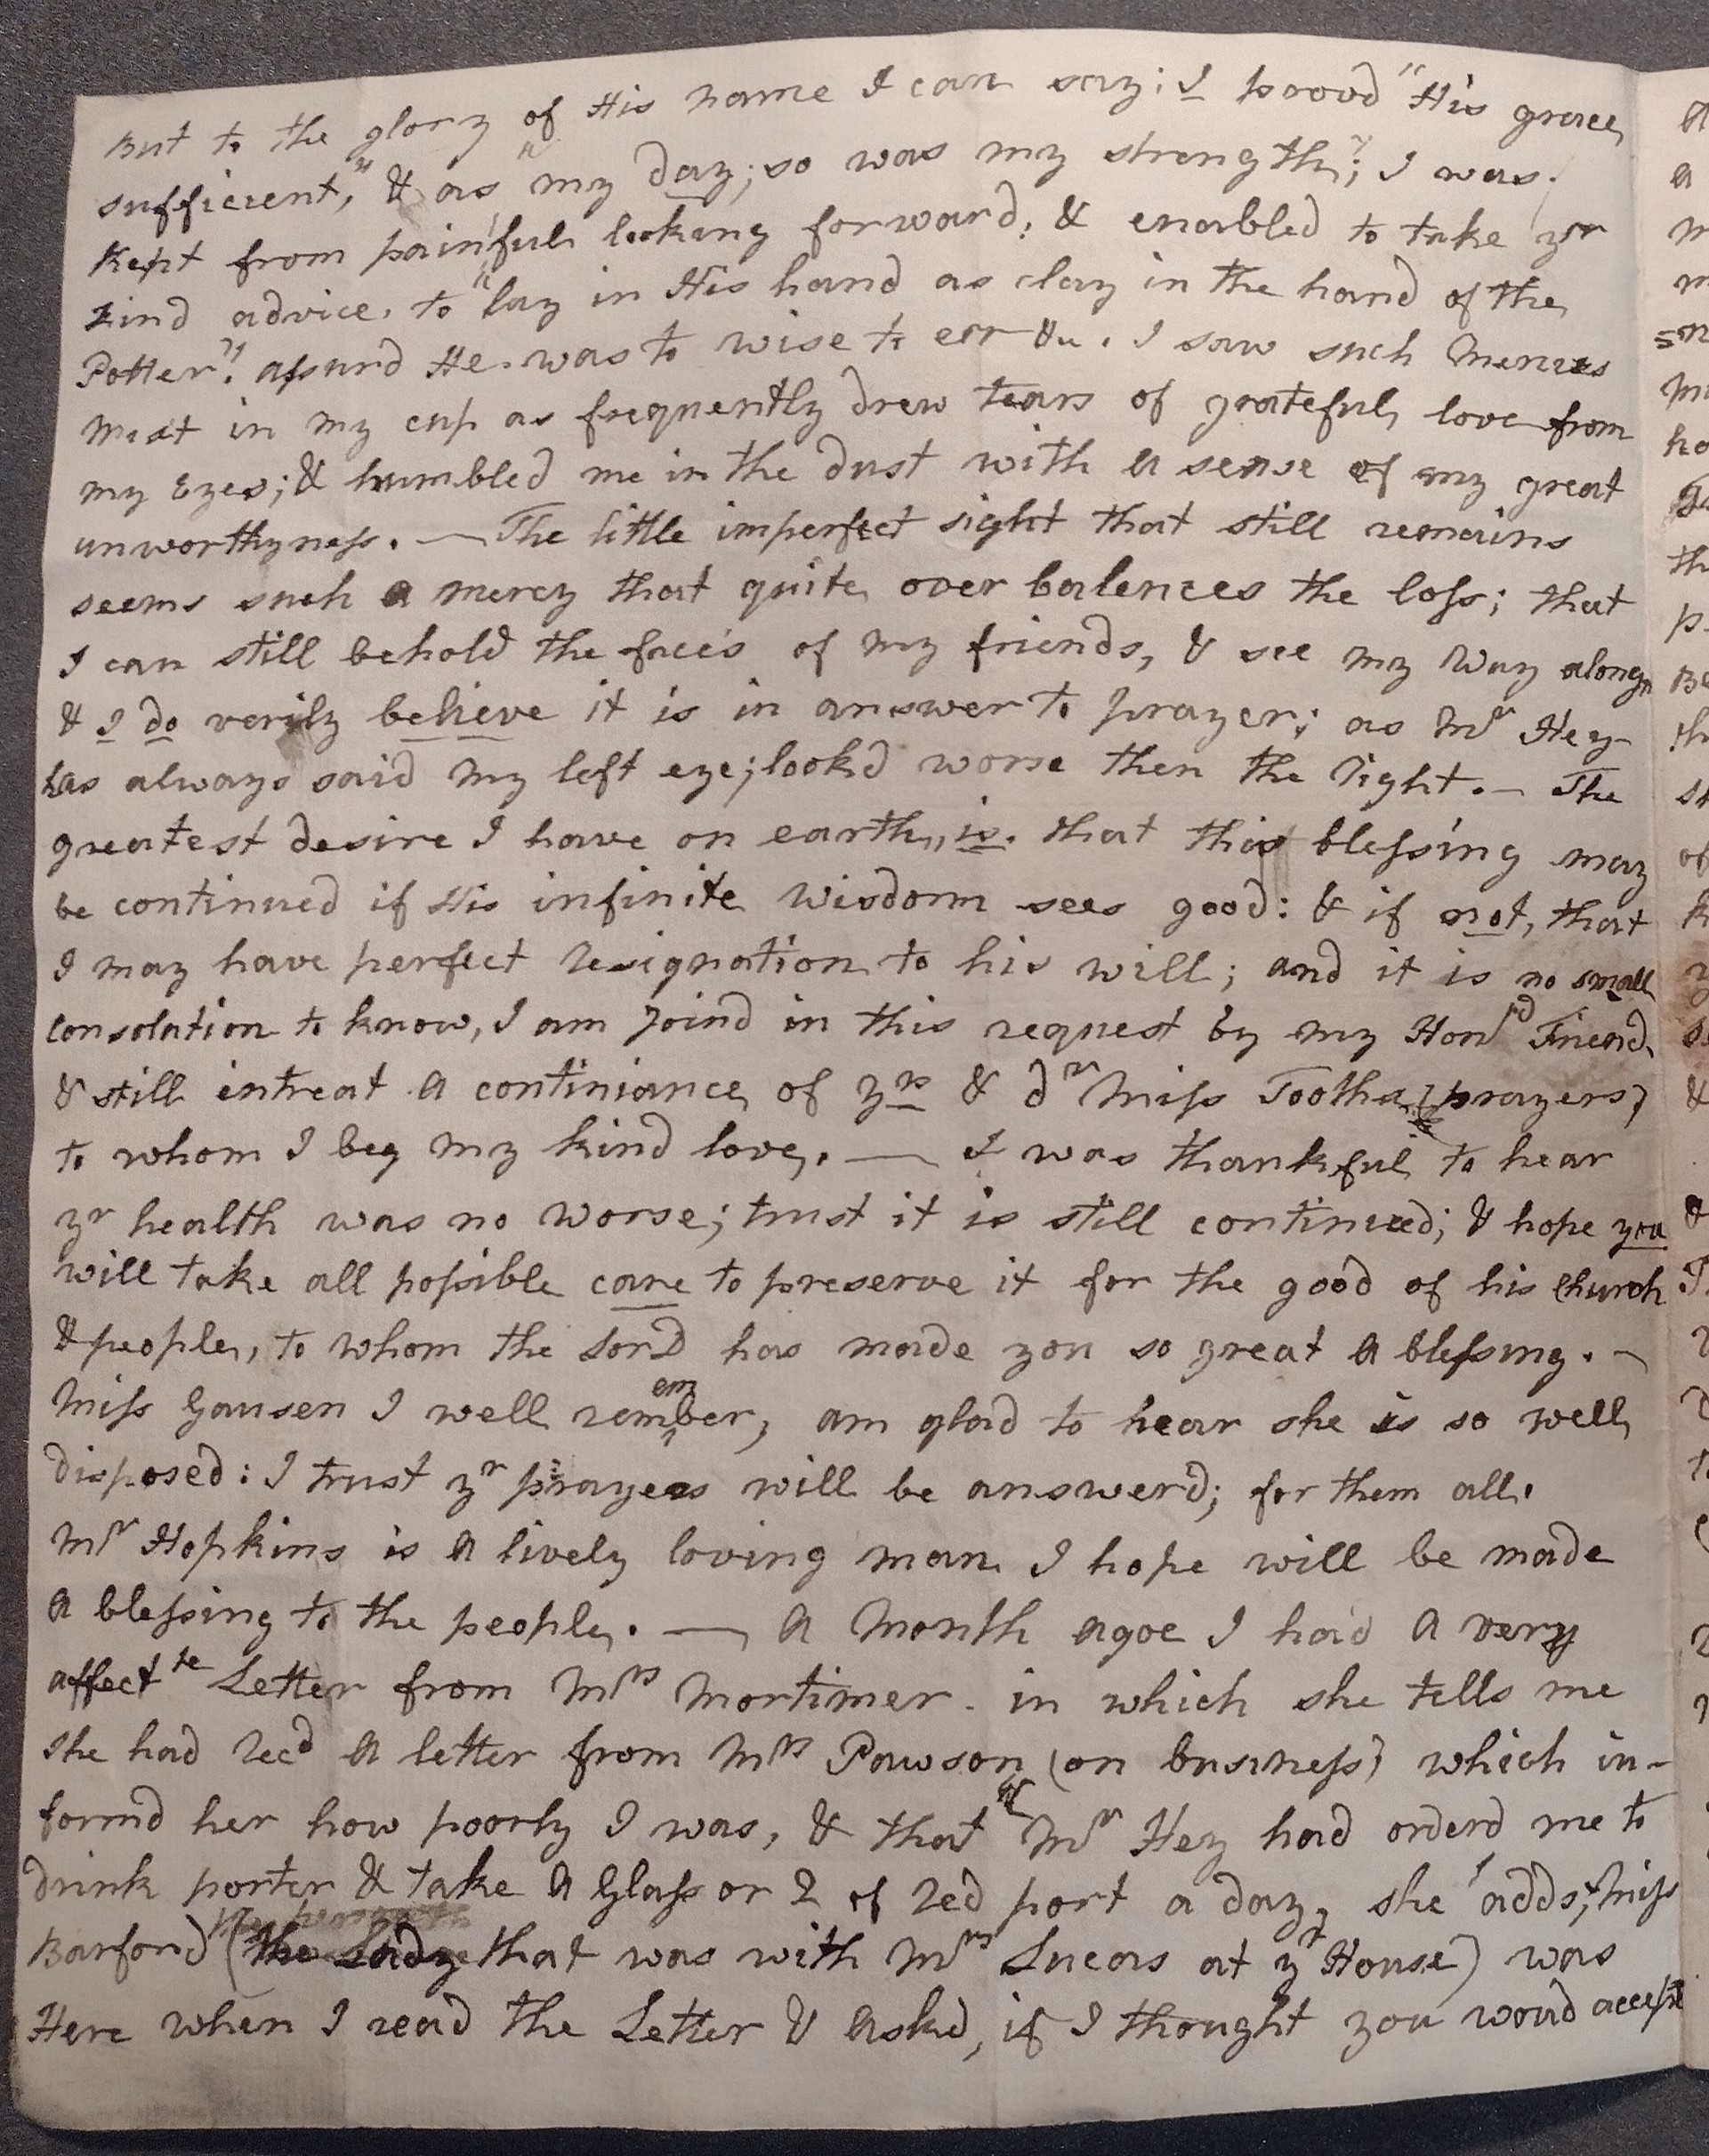 But to the glory of His name I can say; I proov'd "His grace
sufficient," & as "my day; so was my strength"; I was
Kept from painfull looking forward; & enabled to take yor
kind advice, to "lay in His hand as clay in the hand of the
Potter"! assurd He was to wise to err &c. I saw such Mercies
mixt in my cup as frequently drew tears of gratefull love from
my Eyes; & humbled me in the dust with a sense of my great
unworthyness. — The little imperfect sight that still remains
seems such a mercy that quite over balences the loss; that
I can still behold the faces of my friends, & see my Way along
& I do verily believe it is in answer to prayer; as Mr Hey
has always said my left eye; look'd worse then the right. — The
greatest desire I have on earth, is. that this blessing may
be continued if His infinite Wisdom sees good: & if not, that
I may have perfect resignation to his will; and it is no small
consolation to know, I am Joind in this request by my Hond Friend
& still intreat a continiance of yrs & dr Miss Tooths prayers,
to whom I beg my kind love. — I was thankfull to hear
yr health was no worse; trust it is still continued; & hope you
will take all possible care to preserve it for the good of his Church
& people, to whom the Lord has made you so great a blessing. —
Miss Gausen I well remember, am glad to hear she is so well
disposed: I trust yr prayers will be answerd; for them all.
Mr Hopkins is a lively loving man I hope will be made
a blessing to the people. — A Month agoe I had a very
affectte Letter from Mrs Mortimer. in which she tells me
she had recd a letter from Mrs Pawson (on business) which in-
formd her how poorly I was, & that Mr Hey had orderd me to
drink porter & take a Glass or 2 of red port a day, she adds, "Miss
Barford (the Lady that was with Mrs Lucas at yr House) was
Here when I read the Letter & askd, if I thought you woud accept